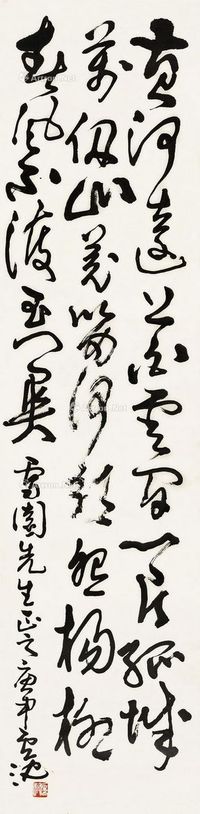 黄河遠上白雲間一片孤城
萬仞山羌笛何須怨楊柳
春風不渡玉門關
雪園先生正之庚申